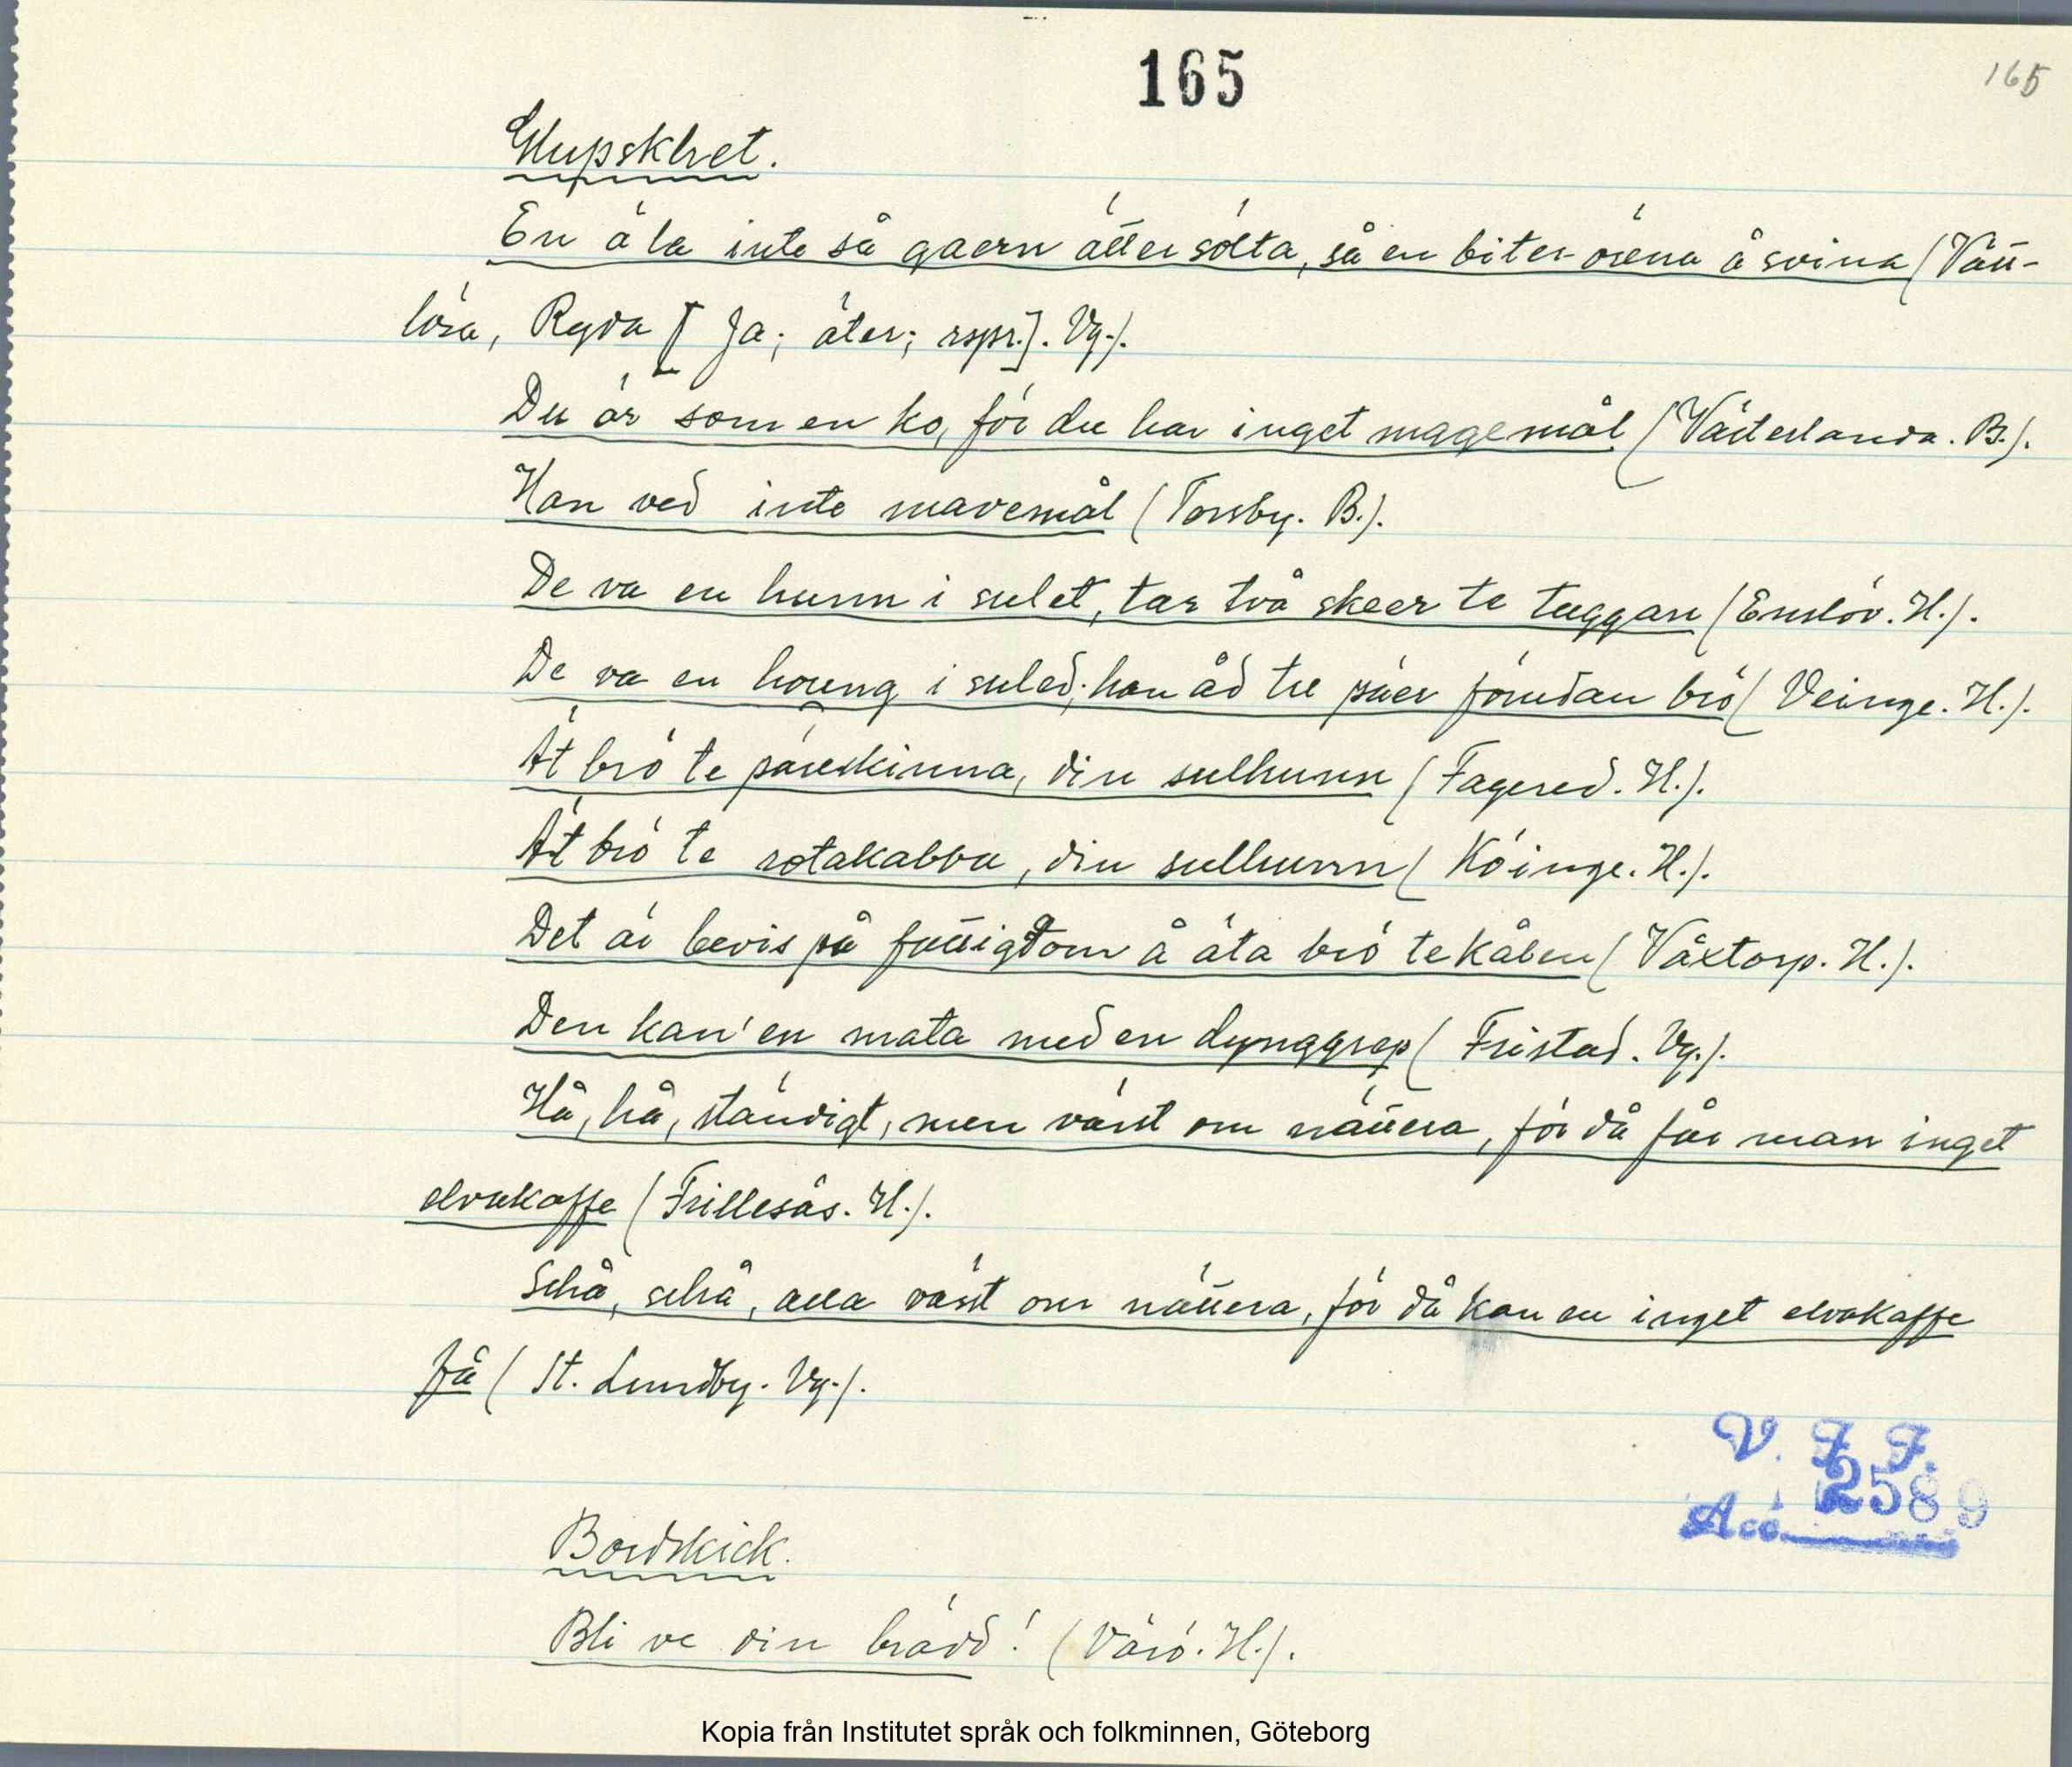 165
165
Glupskhet.
En ä la inte så gaern ätter sölta, så en biter örena å svina (Vätt-
lösa, Ryda [Ja; äter; rspr.]. Vg.).
Du är som en ko, för du har inget magemål (Västerlanda. B.).
Han ved inte mavemål (Torsby. B.).
De va en hunn i sulet, tar två skeer te tuggan (Enslöv. H.).
De va en houng i suled; han åd tre päer förudan brö (Veinge. H.).
Ät brö te päreskinna, din sulhunn (Fagered. H.).
Ät brö te rotakabba, din sulhunn (Köinge. H.).
Det är bevis på fattigdom å äta brö te kålen (Våxtorp. H.).
Den kan' en mata med en dynggrep (Fristad. Vg.).
Hå, hå, ständigt, men värst om nättera, för då får man inget
elvakaffe (Frillesås. H.).
Sehå, sehå, alla värst om nättera, för då kan en inget elvakaffe
få (St. Lundby. Vg.).
V. F. F.
Acc. 2589
Bordskick.
Bli ve din brädd! (Värö. H.).
Kopia från Institutet språk och folkminnen, Göteborg